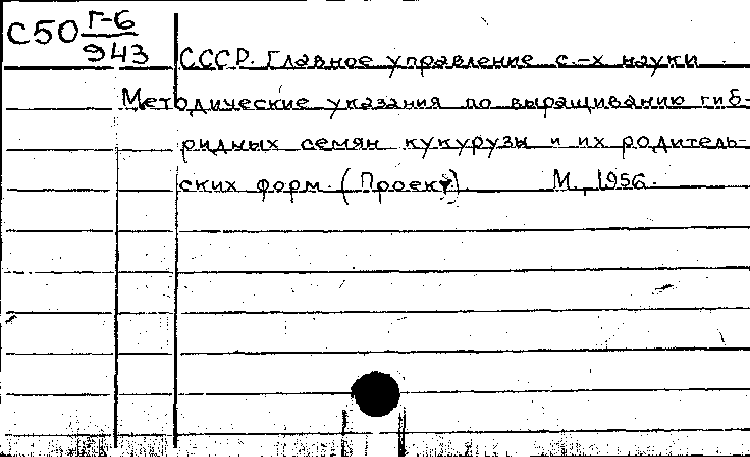 С50 Г-6
943
СССР. Главное управление с.-х науки
Методические указания по выращиванию гиб-
ридных семян кукурузы и их родитель-
ских форм. (Проект). М., 1956.